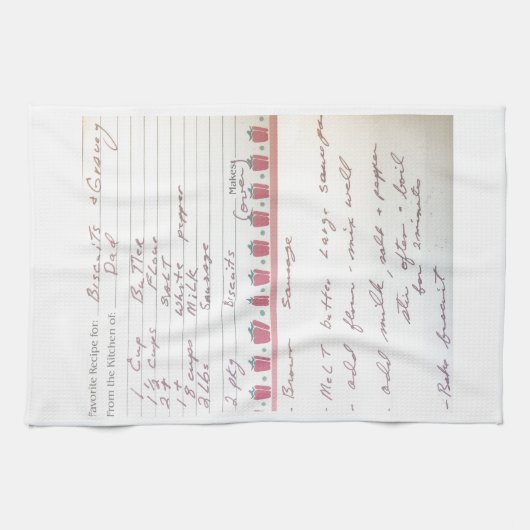 Favorite Recipe for: Biscuits & Gravy
From the Kitchen of: Dad
1 Cup Butter
1 ½ cups Flour
2 t SALT
1 t White pepper
8 cups Milk
2 lbs Sausage
2 pkg Biscuits
Makes: (over)
- Brown Sausage
- Melt butter Large
- add flour - mix well
- add milk, salt + pepper
stir often + boil
for 2 minutes
- Bake biscuit